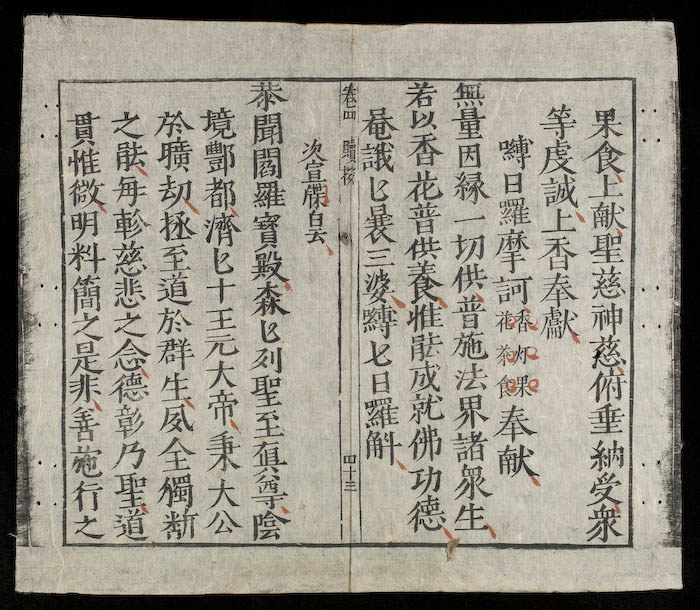 果食上献聖慈神慈俯垂納受衆
等虔誠上香奉獻
嚩日羅摩訶香灯果花茶食奉献
無量因緣一切供普施法界諸衆生
若以香花普供養惟能成就佛功德
菴誐匕曩三婆嚩匕日羅斛
卷四
四十三
次宣牒白云
恭聞閻羅寶殿森匕列聖至真尊陰
境酆都濟匕十王元大帝秉大公
於曠劫拯至道於群生夙全觸斷
之能每軫慈悲之念德彰乃聖道
貫惟微明料簡之是非善施行之